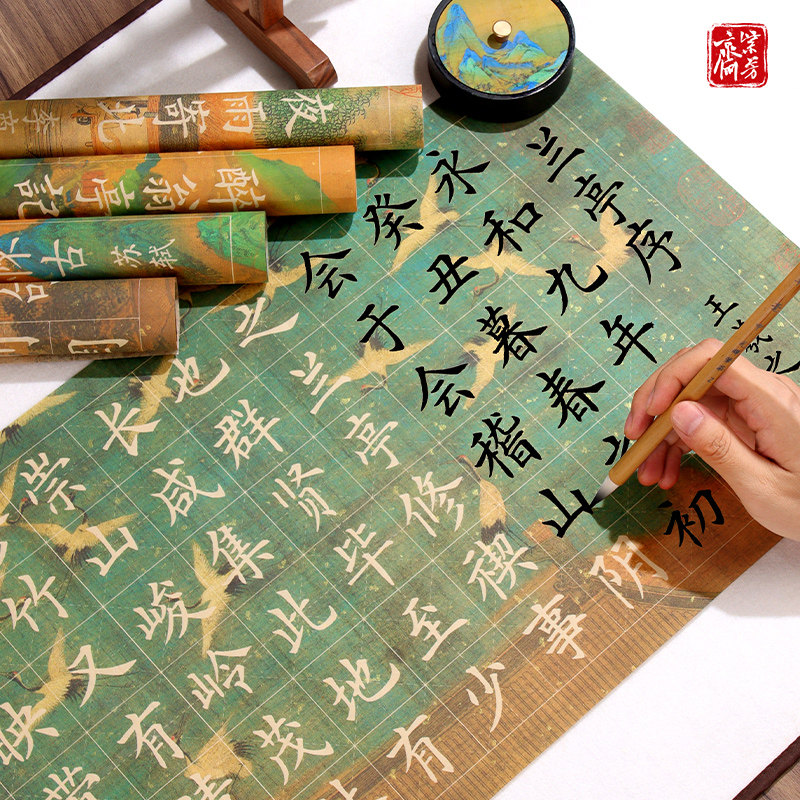 紫芳齋
夜雨寄北
醉翁亭記
苏轼
兰亭序 王羲之
永和九年
癸丑暮春之初
会于会稽山阴
之兰亭修禊事
也群贤毕至少
长咸集此地有
崇山峻岭茂
竹又有清
映带